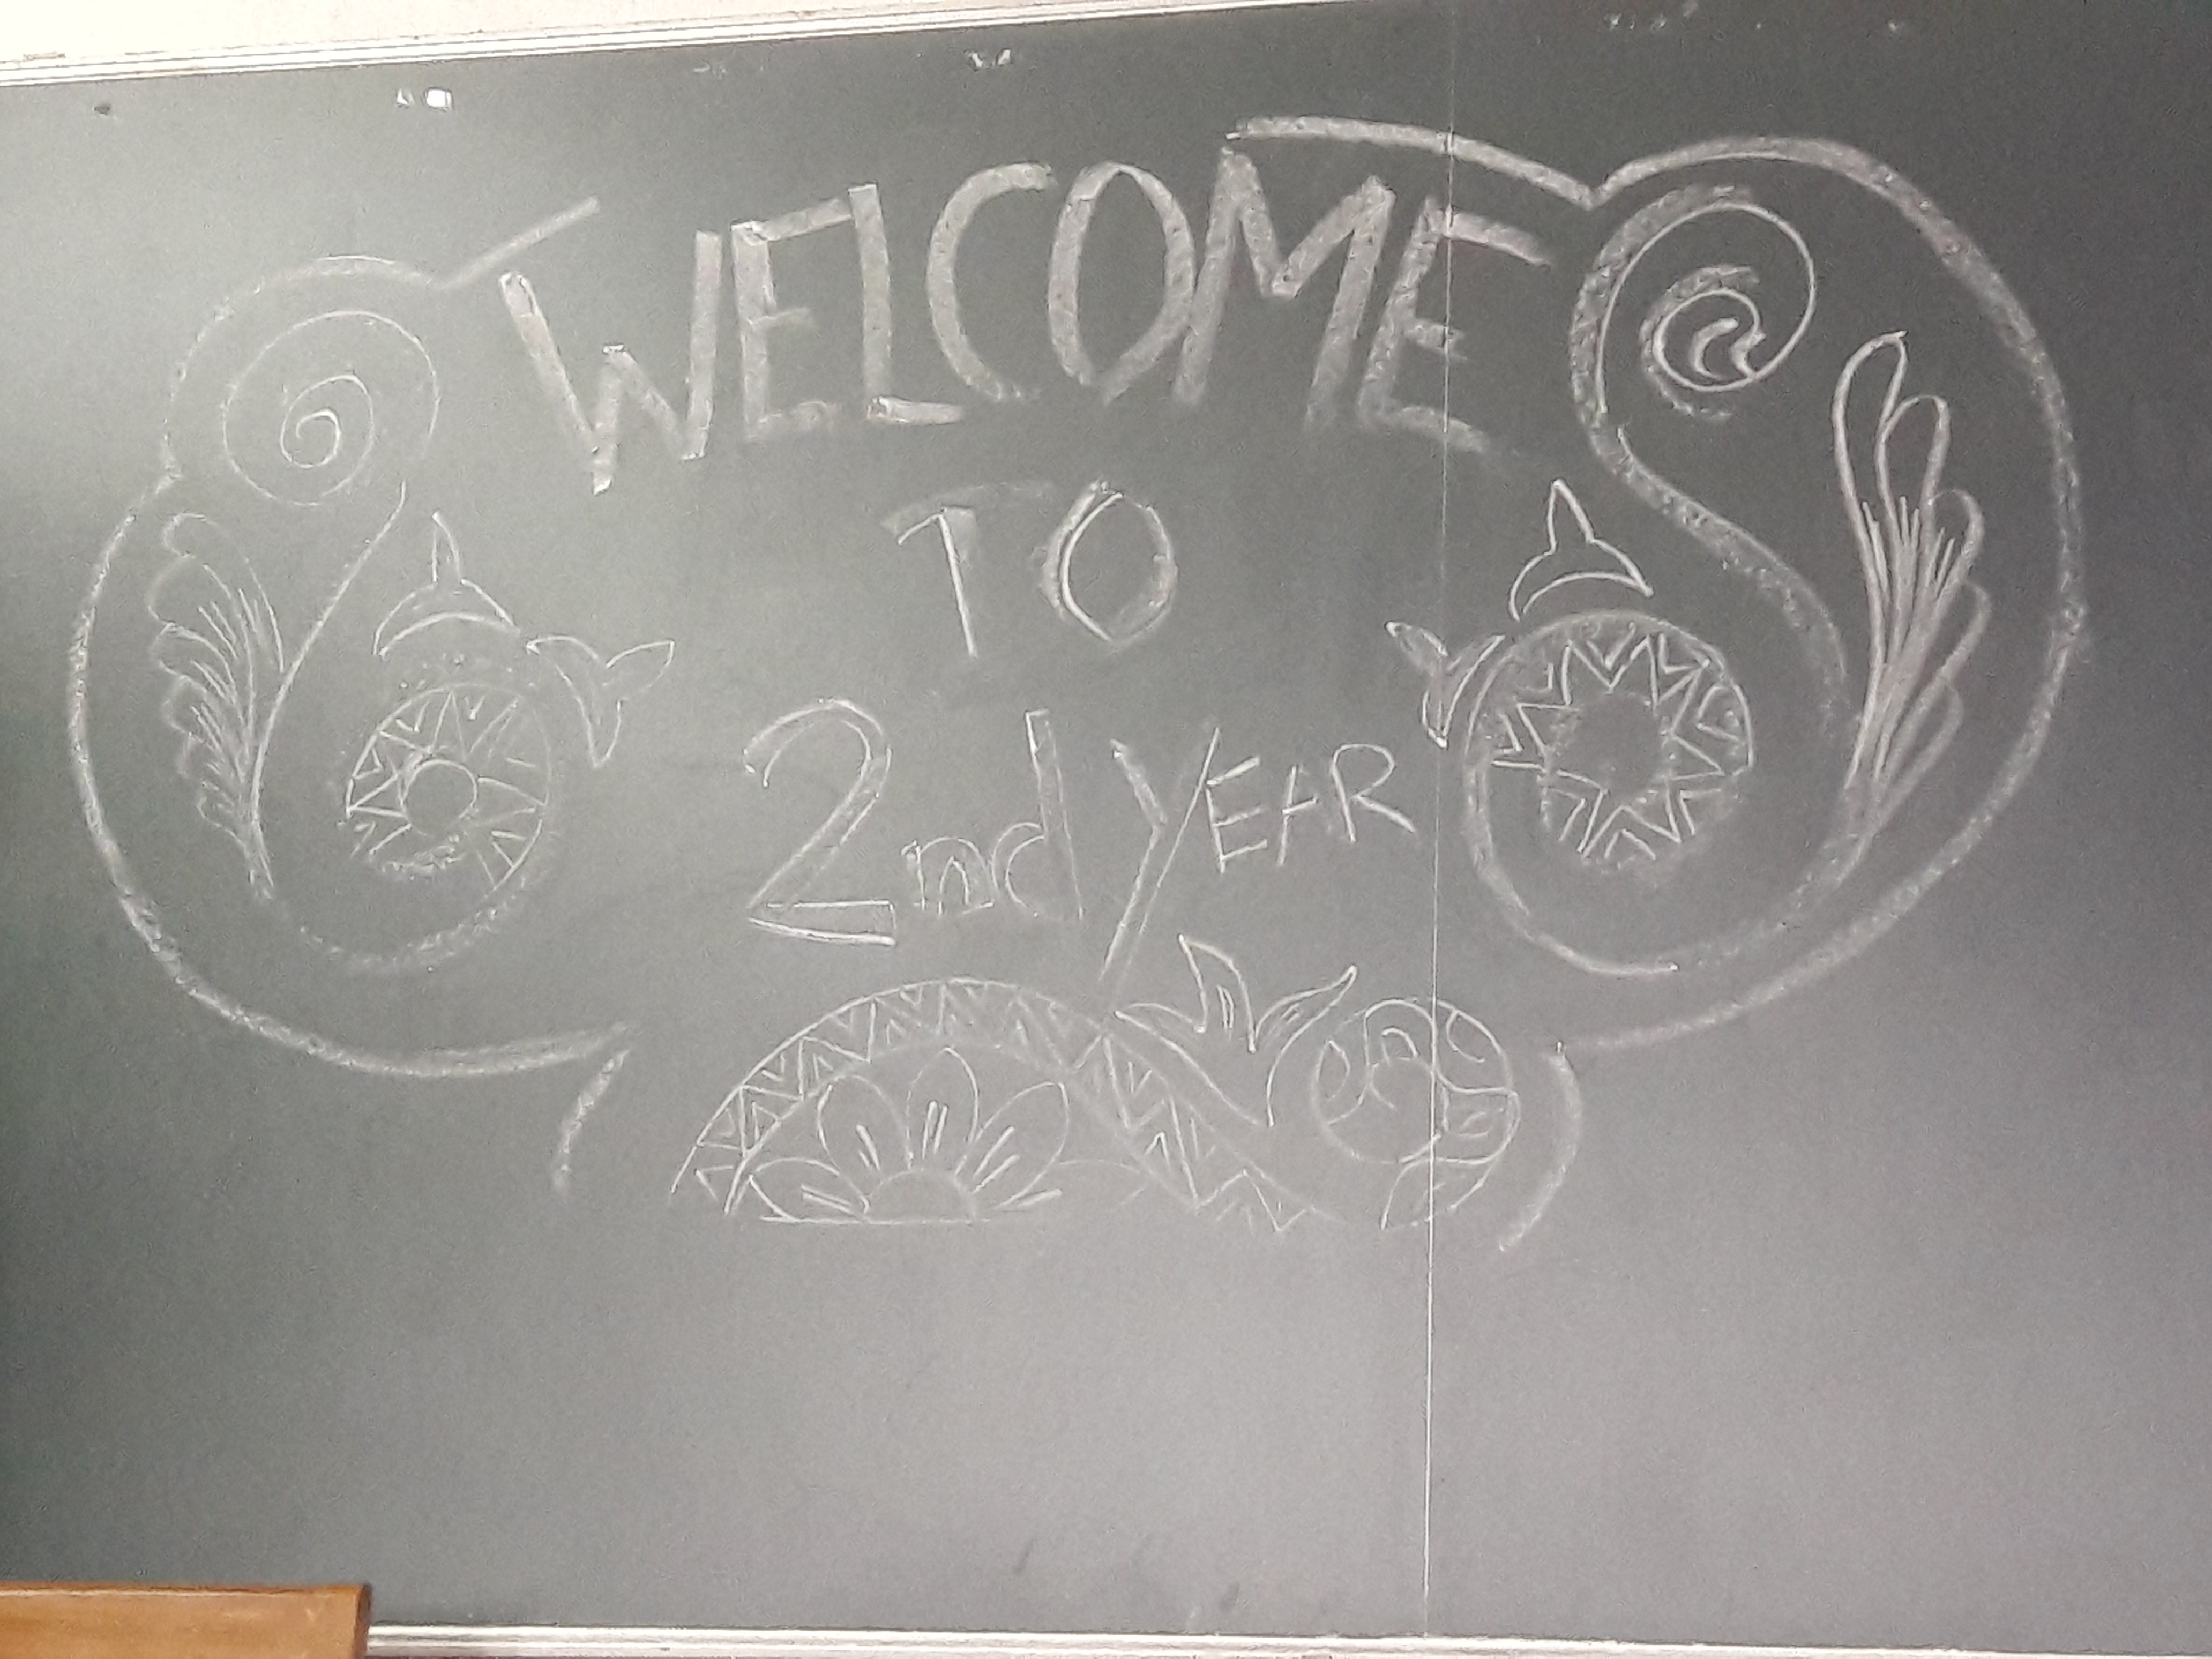 WELCOME
TO
2nd YEAR